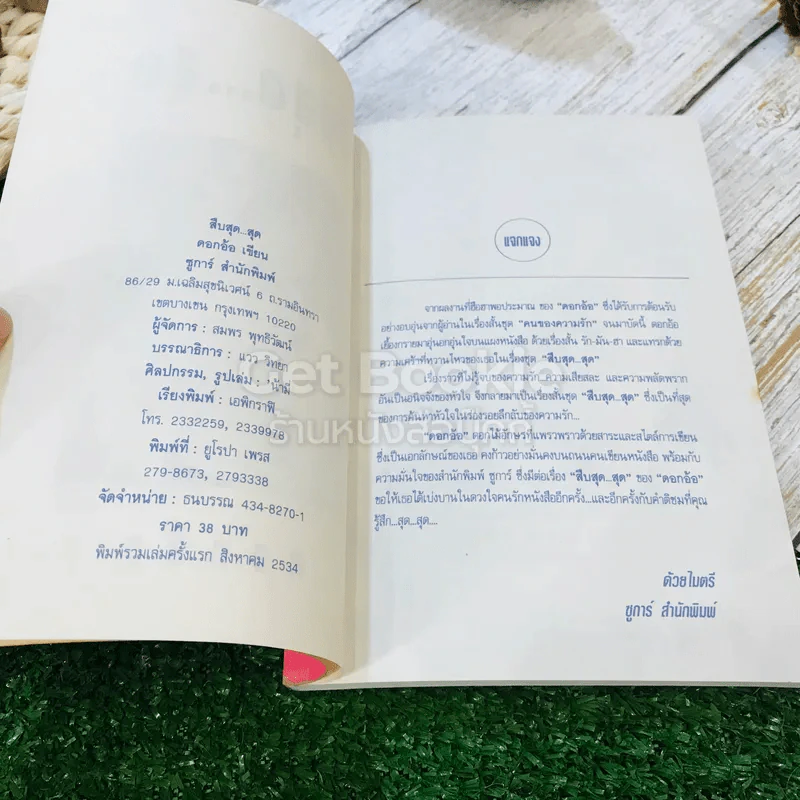 สืบสุด...สุด
ดอกอ้อ เขียน
ชูการ์ สำนักพิมพ์
86/29 ม.เฉลิมสุขนิเวศน์ 6 ถ.รามอินทรา
เขตบางเขน กรุงเทพฯ 10220
ผู้จัดการ : สมพร พุทธิวัฒน์
บรรณาธิการ : แวว วิทยา
ศิลปกรรม, รูปเล่ม : น้ามี่
เรียงพิมพ์ : เอพิกราฟิ
โทร. 2332259, 2339978
พิมพ์ที่ : ยูโรปา เพรส
279-8673, 2793338
จัดจำหน่าย : ธนบรรณ 434-8270-1
ราคา 38 บาท
พิมพ์รวมเล่มครั้งแรก สิงหาคม 2534
แจกแจง
จากผลงานที่ฮือฮาพอประมาณ ของ "ดอกอ้อ" ซึ่งได้รับการต้อนรับ
อย่างอบอุ่นจากผู้อ่านในเรื่องสั้นชุด "คนของความรัก" จนมาบัดนี้ ดอกอ้อ
เยื้องกรายมาอุ่นอกอุ่นใจบนแผงหนังสือ ด้วยเรื่องสั้น รัก-มัน-ฮา และแทรกด้วย
ความเศร้าที่หวานไหวของเธอในเรื่องชุด "สืบสุด...สุด"
เรื่องราวที่ไม่รู้จบของความรัก ความเสียสละ และความพลัดพราก
อันเป็นอนิจจังของหัวใจ จึงกลายมาเป็นเรื่องสั้นชุด "สืบสุด...สุด" ซึ่งเป็นที่สุด
ของการค้นหาหัวใจในร่องรอยลึกลับของความรัก...
"ดอกอ้อ" ดอกไม้อักษรที่แพรวพราวด้วยสาระและสไตล์การเขียน
ซึ่งเป็นเอกลักษณ์ของเธอ คงก้าวอย่างมั่นคงบนถนนคนเขียนหนังสือ พร้อมกับ
ความมั่นใจของสำนักพิมพ์ ชูการ์ ซึ่งมีต่อเรื่อง "สืบสุด...สุด" ของ "ดอกอ้อ"
ขอให้เธอได้เบ่งบานในดวงใจคนรักหนังสืออีกครั้ง...และอีกครั้งกับคำติชมที่คุณ
รู้สึก...สุด...สุด....
ด้วยไมตรี
ชูการ์ สำนักพิมพ์
Get Bookie
ร้านหนังสือกู๊ดดี้